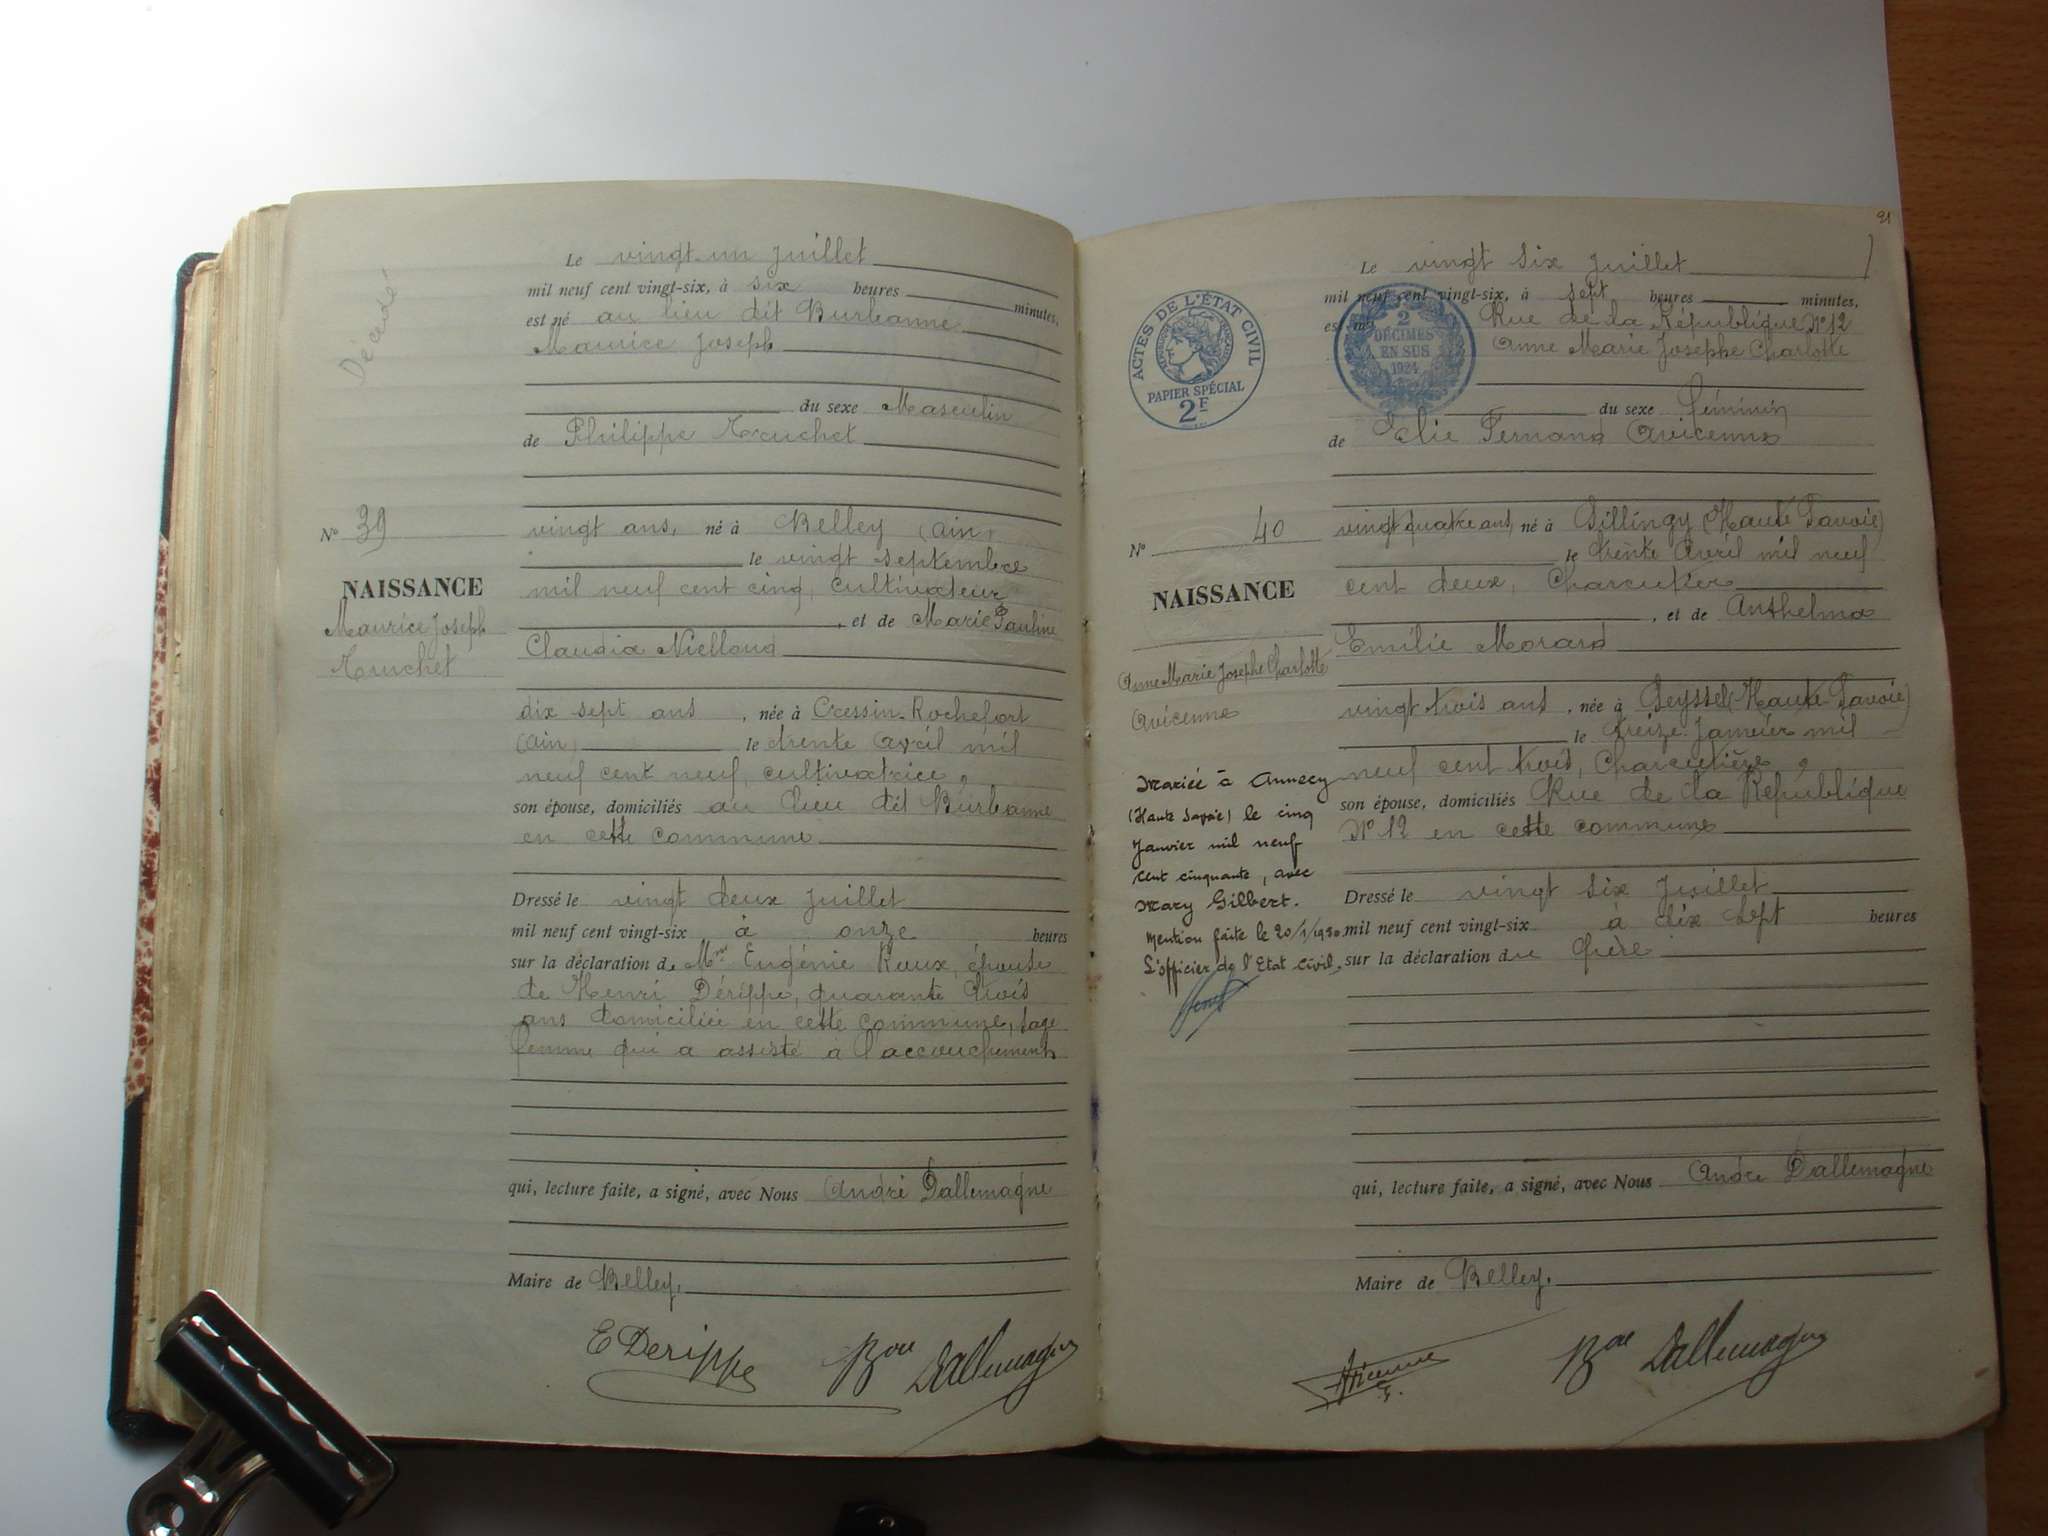 Décédé
Le vingt-un juillet
mil neuf cent vingt-six, à six heures minutes,
est né au lieu dit Burbanne
Maurice Joseph
du sexe Masculin
de Philippe Truchet
N° 39
vingt ans, né à Belley (Ain)
le vingt septembre
NAISSANCE
mil neuf cent cinq, cultivateur
Maurice Joseph
Truchet
, et de Marie Pauline
Claudia Nielloud
dix sept ans , née à Cressin-Rochefort
(Ain) le trente Avril mil
neuf cent neuf, cultivatrice,
son épouse, domiciliés au lieu dit Burbanne
en cette commune
Dressé le vingt deux juillet
mil neuf cent vingt-six à onze heures
sur la déclaration de Mme Eugénie Roux, épouse
de Henri Dérippe, quarante trois
ans domiciliée en cette commune, sage
femme qui a assisté à l'accouchement
qui, lecture faite, a signé, avec Nous André Dallemagne
Maire de Belley.
E Derippe Bon Dallemagne
21
Le vingt six juillet
mil neuf cent vingt-six, à sept heures minutes,
est né Rue de la République N° 12
Anne Marie Josephe Charlotte
ACTES DE L'ÉTAT CIVIL
PAPIER SPÉCIAL
2F
2
DÉCIMES
EN SUS
1924
du sexe féminin
de Elie Fernand Avicenne
N° 40
vingt quatre ans, né à Sillingy (Haute Savoie)
le trente Avril mil neuf
NAISSANCE
cent deux, Charcutier
, et de Anthelma
Emilie Morard
Anne Marie Josephe Charlotte
Avicenne
vingt trois ans , née à Seyssel (Haute Savoie)
le treize Janvier mil
neuf cent trois, Charcutière,
son épouse, domiciliés Rue de la République
N° 12 en cette commune
Mariée à Annecy
(Haute Savoie) le cinq
Janvier mil neuf
cent cinquante, avec
Mary Gilbert.
Mention faite le 20/1/1950
L'officier de l'Etat Civil,
Dressé le vingt six juillet
mil neuf cent vingt-six à dix sept heures
sur la déclaration du Père
qui, lecture faite, a signé, avec Nous André Dallemagne
Maire de Belley.
Avicenne F. Bon Dallemagne